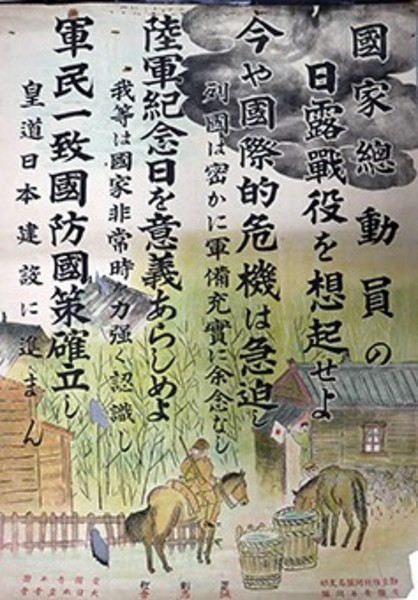 國家總動員の
日露戰役を想起せよ
今や國際的危機は急迫し
列國は密かに軍備充實に余念なし
陸軍紀念日を意義あらしめよ
我等は國家非常時を力強く認識し
軍民一致國防國策確立し
皇道日本建設に進まん